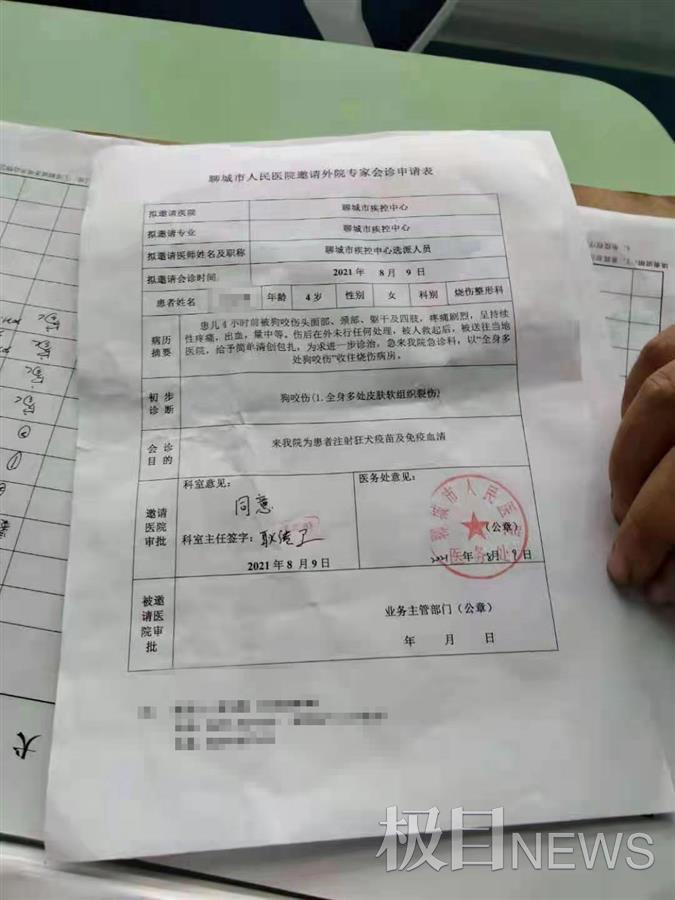 聊城市人民医院邀请外院专家会诊申请表
拟邀请医院 聊城市疾控中心
拟邀请专业 聊城市疾控中心
拟邀请医师姓名及职称 聊城市疾控中心选派人员
拟邀请会诊时间 2021 年 8 月 9 日
患者姓名 年龄 4 岁 性别 女 科别 烧伤整形科
病历摘要
患儿 4 小时前被狗咬伤头面部、颈部、躯干及四肢，疼痛剧烈，呈持续
性疼痛，出血，量中等。伤后在外未行任何处理，被人救起后，被送往当地
医院，给予简单清创包扎，为求进一步诊治，急来我院急诊科，以“全身多
处狗咬伤”收住烧伤病房。
初步诊断
狗咬伤(1.全身多处皮肤软组织裂伤)
会诊目的
来我院为患者注射狂犬疫苗及免疫血清
邀请医院审批
科室意见：
同意
科室主任签字：
2021 年 8 月 9 日
医务处意见：
聊城市人民医院
医务处
(公章)
2021 年 8 月 9 日
被邀请医院审批
业务主管部门（公章）
年 月 日
犬
极目NEWS